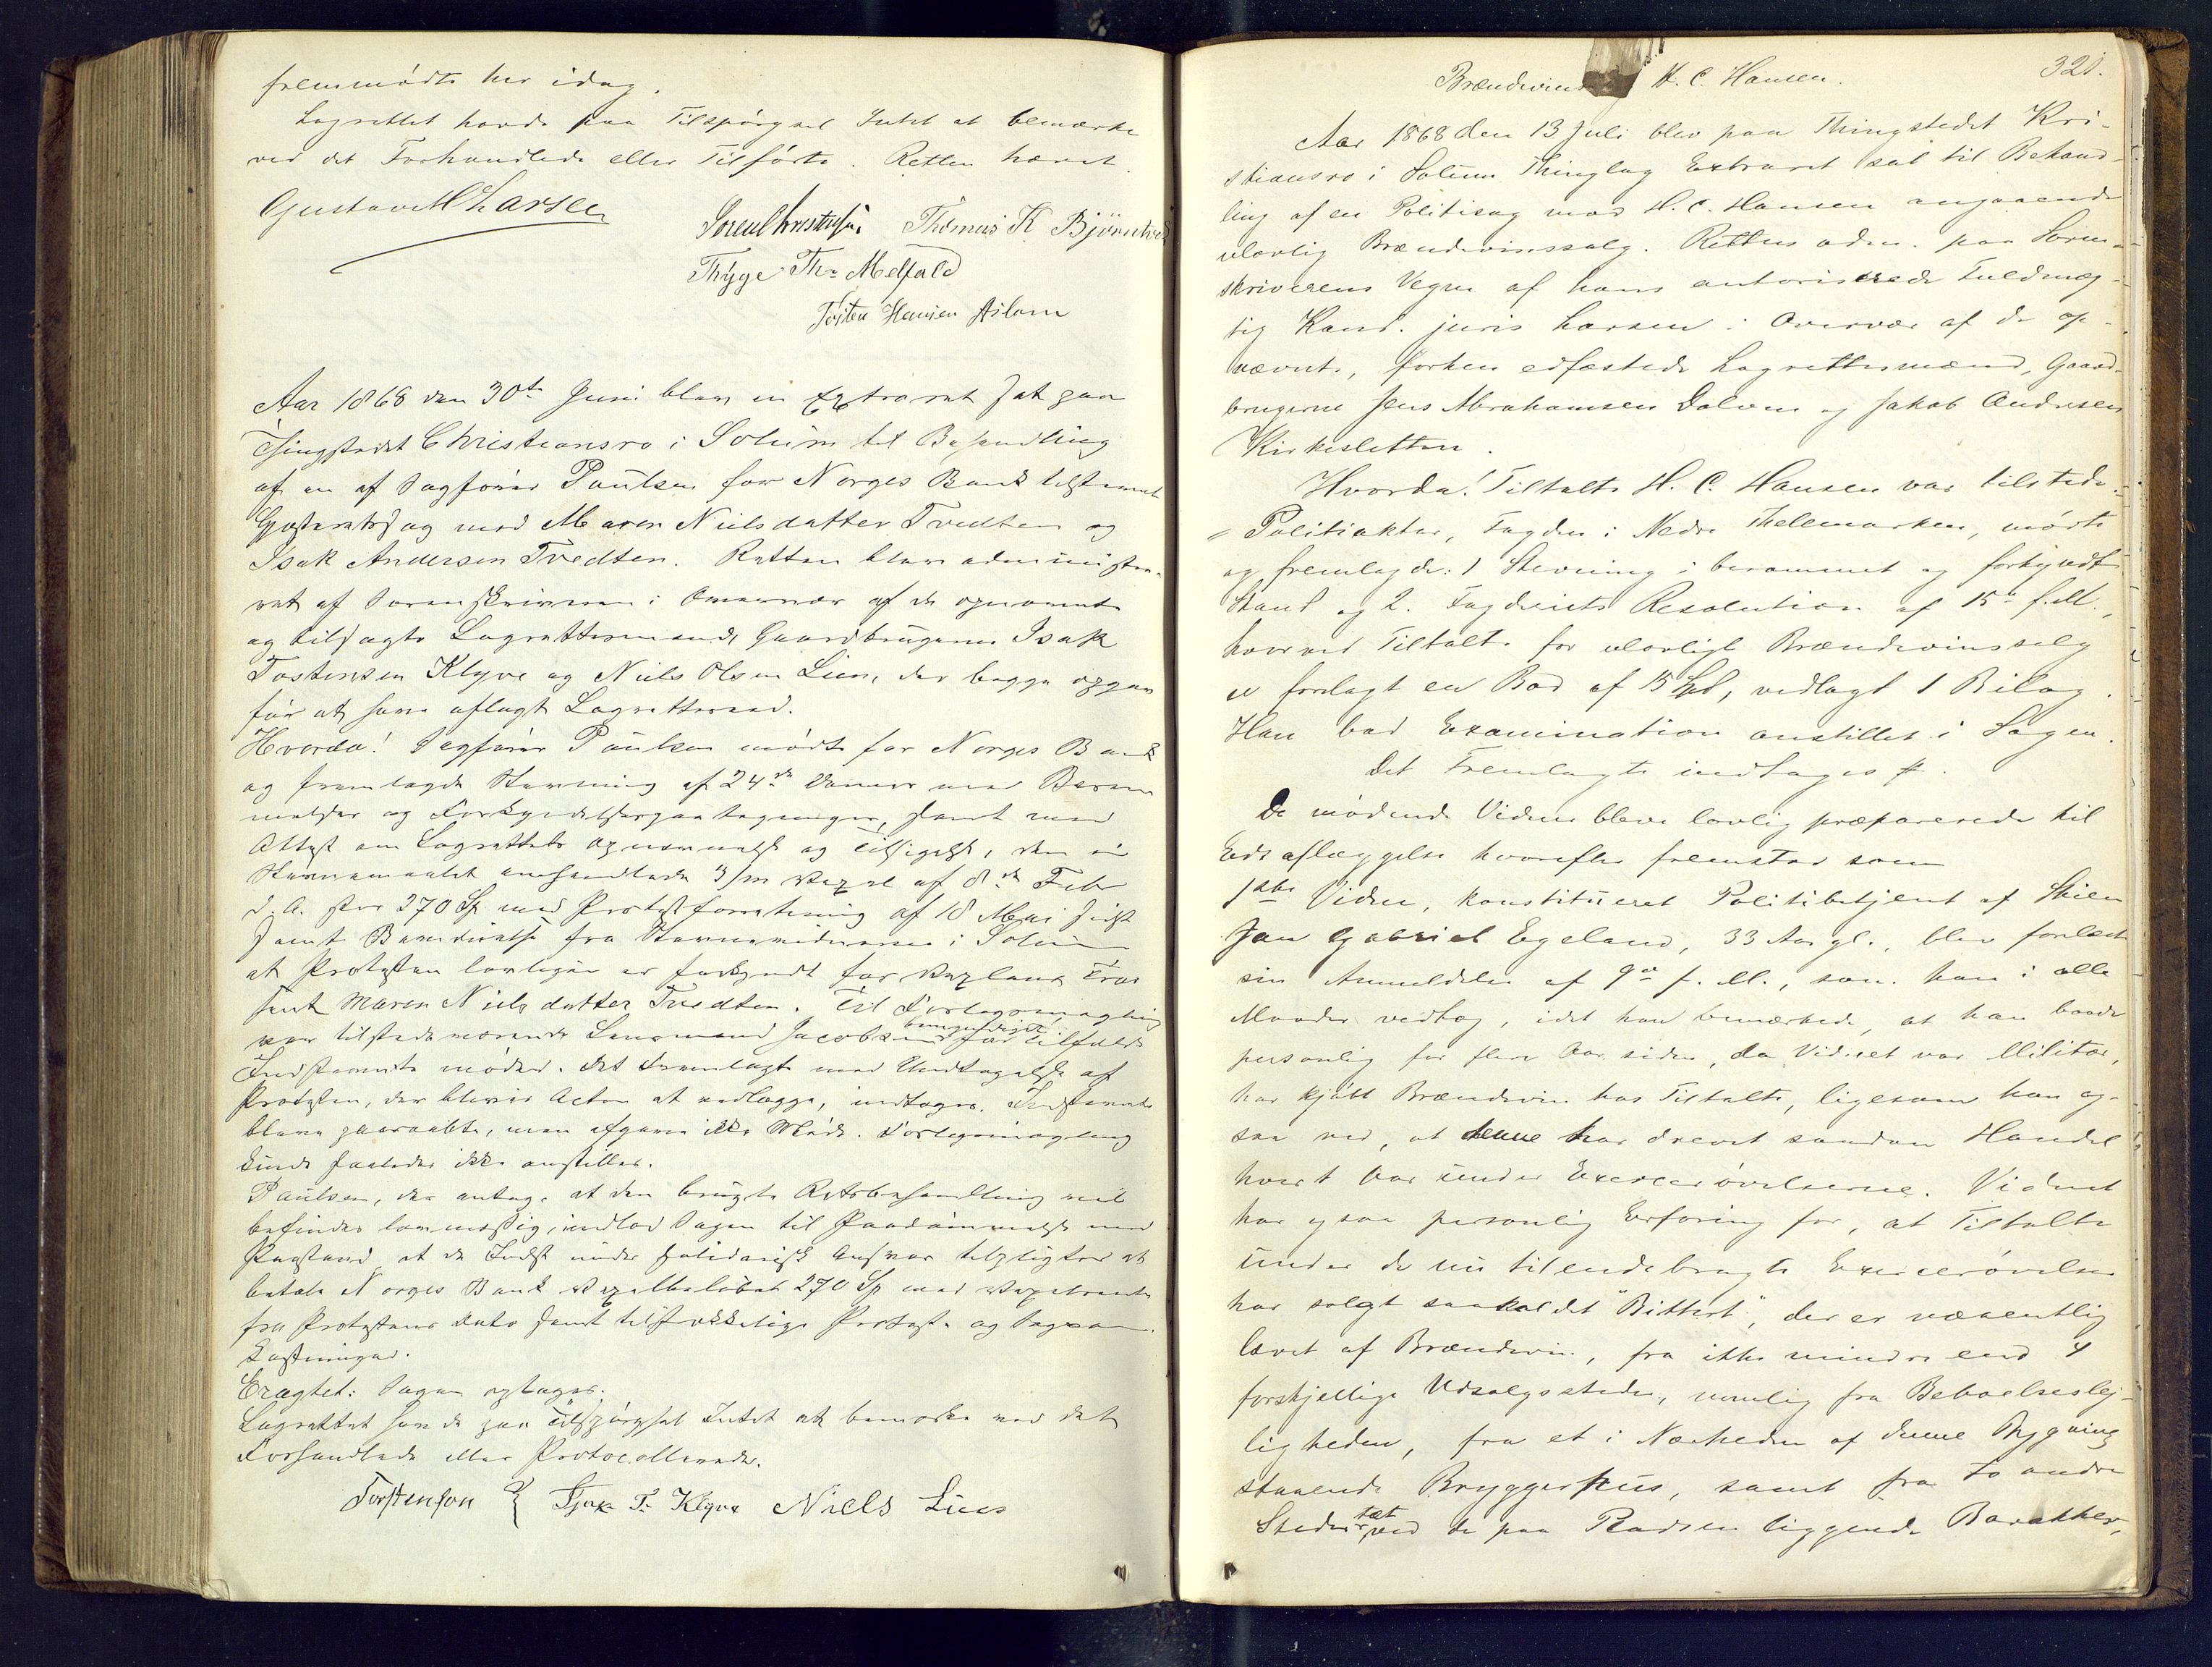 fremmødte her idag.
Lagrettet havde paa Tilspørgsel Intet at bemærke
ved det Forhandlede eller Tilførte. Retten hævet.
Gustav M Larsen
Søren Christensen Thomas K Bjørndved
Thyge Ths. Melfald
Torsten Hansen Aslam
Aar 1868 den 30te Juni blev en Extraret sat paa
Thingstedet Christiansro i Solum til Behandling
af en af Sagfører Paulsen for Norges Bank tilstevnt
Gjæsteretssag mod Maren Nielsdatter Tvedten og
Isak Andersen Tvedten. Retten blev administre-
ret af Sorenskriveren i Overvær af de opnævnte
og tilsagte Lagrettesmænd, Gaardbrugerne Isak
Tostensen Klyve og Niels Olsen Lien, der begge opgav
før at have aflagt Lagretteseed.
Hvorda! Sagfører Paulsen mødte for Norges Bank
og fremlagde Stævning af 24de dennes med Beram-
melses og Forkyndelsespaategninger, samt med
Attest om Lagrettets Opnævnelse og Tilsigelse, den i
Stævnemaalet omhandlede 3/m Vexel af 8de Febr
d. A. stor 270 Sp med Protestforretning af 18 Mai sidst
samt Beviislighed fra Stævnevidnerne i Solum
at Protesten lovligen er forkyndt for Vexlens Tras-
sent Maren Nielsdatter Tvedten. Til Forligsmægling
var tilstedeværende Lensmand Jacobsen bemyndiget for Tilfælde
Indstevnte mødte. Det Fremlagte med Undtagelse af
Protesten, der bliver Acten at vedlægge, indtages. Indstevnte
bleve paaraabte, men afgave ikke Møde. Forligsmægling
kunde saaledes ikke anstilles.
Paulsen, der antog, at den brugte Retsbehandling vil
befindes lovmæssig, indlod Sagen til Paadømmelse med
Paastand at de Indst. under solidarisk Ansvar tilpligtes at
betale Norges Bank Vexelbeløbet 270 Sp med Vexelrente
fra Protestens Dato samt tilstrækkelige Protest- og Sagsom-
kostninger.
Eragtet: Sagen optages.
Lagrettet havde paa Tilspørgsel Intet at bemærke ved det
Forhandlede eller Protocollerede.
Torstenson Isak T. Klyve Niels Lien
321.
Brændevins H. C. Hansen.
Aar 1868 den 13 Juli blev paa Thingstedet Kri-
stiansro i Solum Thinglag Extraret sat til Behand-
ling af en Politisag mod H. C. Hansen angaaende
ulovlig Brændevinssalg. Retten adm. paa Soren-
skriverens Vegne af hans autoriserede Fuldmæg-
tig Kand. juris Larsen i Overvær af de op-
nævnte, forhen edfæstede Lagrettesmænd, Gaard-
brugerne Jens Abrahamsen Dolven og Jakob Andresen
Kirkesletten.
Hvorda! Tiltalte H. C. Hansen var tilstede.
Politiaktor, Fogden i Nedre Thellemarken, mødte
og fremlagde: 1 Stevning i berammet og forkyndt
Stand og 2. Fogderiets Resolution af 15de f. M.,
hvorved Tiltalte for ulovligt Brændevinssalg
er forelagt en Bod af 15 Spd, vedlagt 1 Bilag.
Han bad Examination anstillet i Sagen.
Det Fremlagte indtages
De mødende Vidner bleve lovlig præparerede til
Eds aflæggelse hvorefter fremstod som
1ste Vidne, konstitueret Politibetjent af Skien
Jan Gabriel Egeland, 33 Aar gl., blev forelæst
sin Anmeldelse af 9de f. M., som han i alle
Maader vedtog, idet han bemærkede, at han baade
personlig for flere Aar siden, da Vidnet var Militær,
har kjøbt Brændevin hos Tiltalte, ligesom han og-
saa ved, at denne har drevet saadan Handel
hvert Aar under Exercerøvelserne. Vidnet
har ogsaa personlig Erfaring for, at Tiltalte
under de nu tilendebragte Exercerøvelser
har solgt saakaldet "Bittert", der er væsentlig
lavet af Brændevin, fra ikke mindre end 4
forskjellige Udsalgssteder, nemlig fra Beboelseslej-
ligheden, fra et i Nærheden af denne Bygning
staaende Bryggerhus, samt fra to andre
Steder tæt ved de paa Pladsen liggende Barakker,